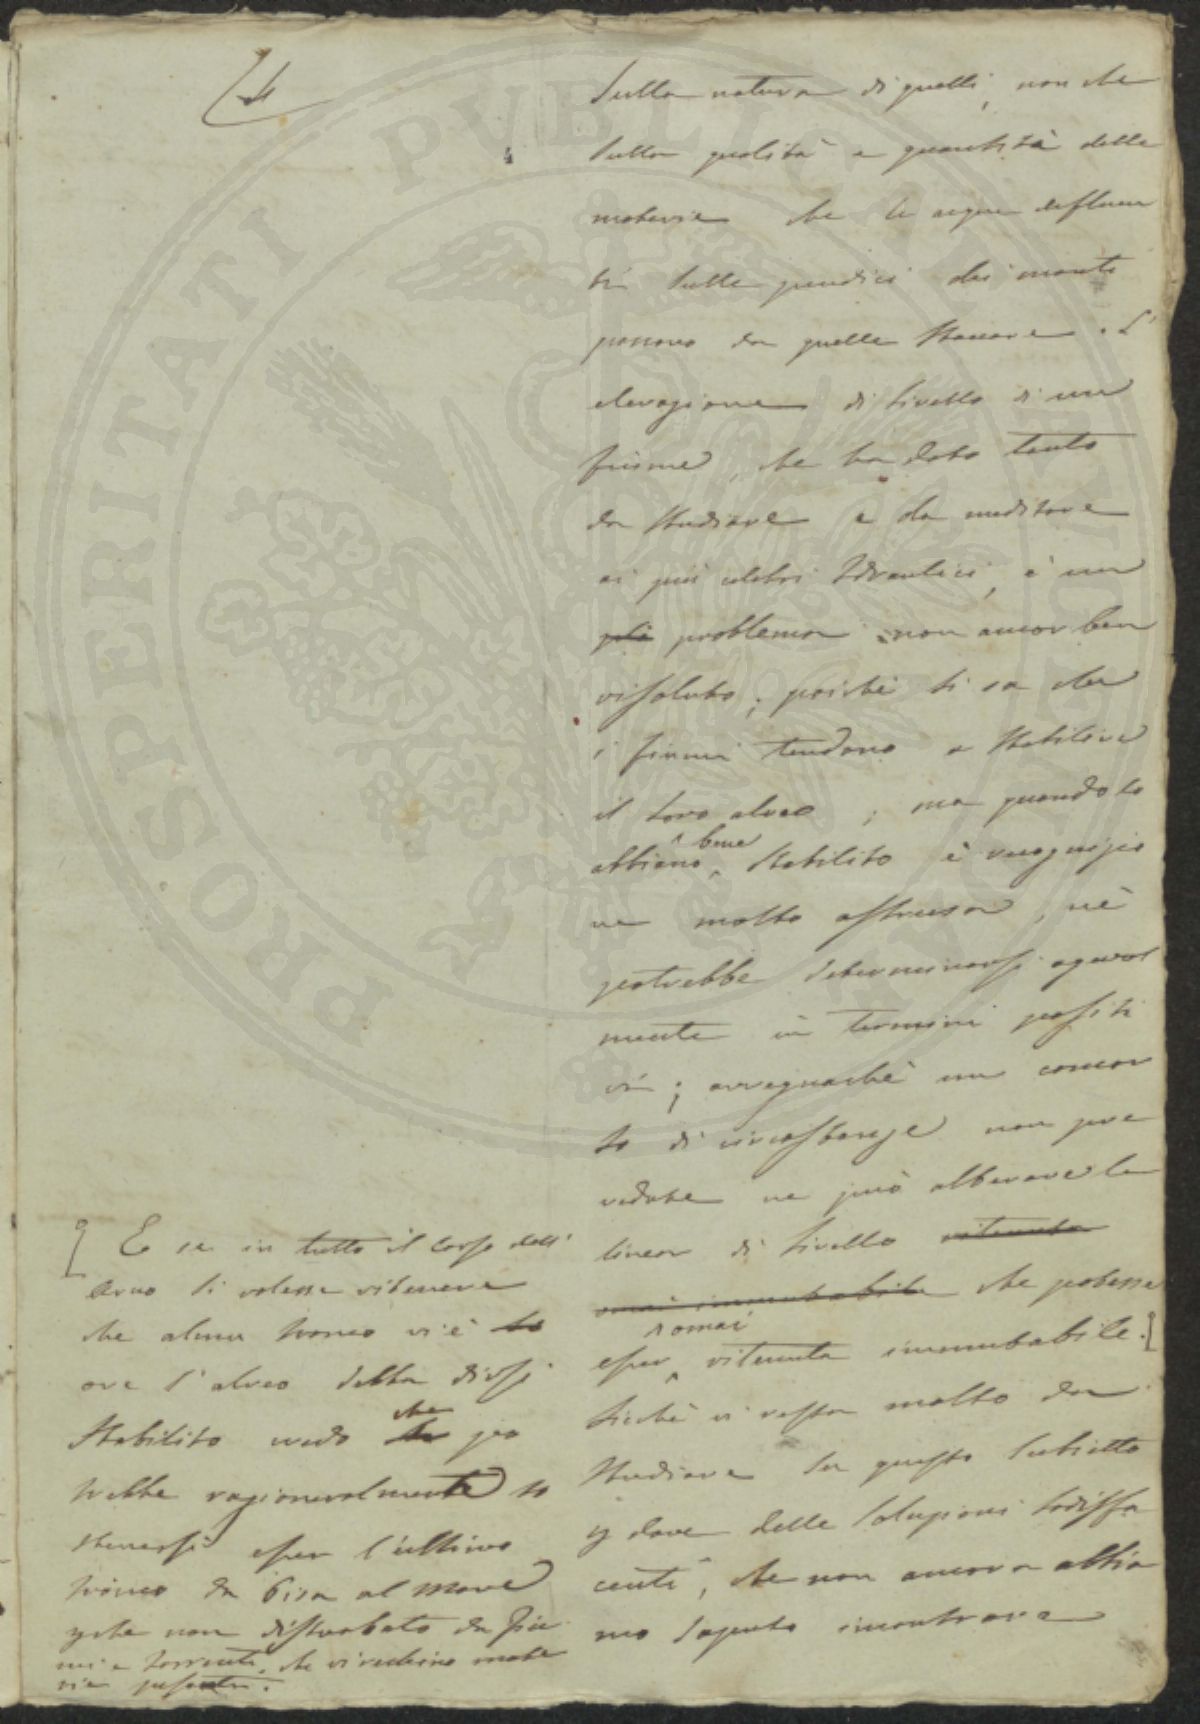 4
sulla natura di quelli, non che
sulla qualità e quantità delle
materie che le acque defluen
ti sulle pendici dei monti
possono da quelle staccare. L'
elevazione di livello di un
fiume, che ha dato tanto
da studiare e da meditare
ai più celebri Idraulici, è un
più problema non ancor ben
risoluto; poiché si sa che
i fiumi tendono a stabilire
il loro alveo; ma quando lo
abbiano bene stabilito è
ne molto astrusa, nè
potrebbe determinarsi agevol
mente in termini positi
vi; avvegnachè un concor
so di circostanze non pre
vedute ne può alterare la
linea di livello ritenuta
omai immutabile che potesse
esser omai ritenuta immutabile.
Sicchè vi resta molto da
studiare su questo subietto
p dare delle soluzioni sodisfa
centi, che non ancora abbia
mo saputo incontrare
E se in tutto il corso dell'
Arno si volesse ritenere
che alcun tronco vi è
ove l'alveo debba dirsi
stabilito credo che po
trebbe ragionevolmente so
stenersi esser l'ultimo
tronco da Pisa al mare
pche non disturbato da fiu
mi e torrenti, che vi rechino mate
rie pesanti.
PROSPERITATI PVBLICAE